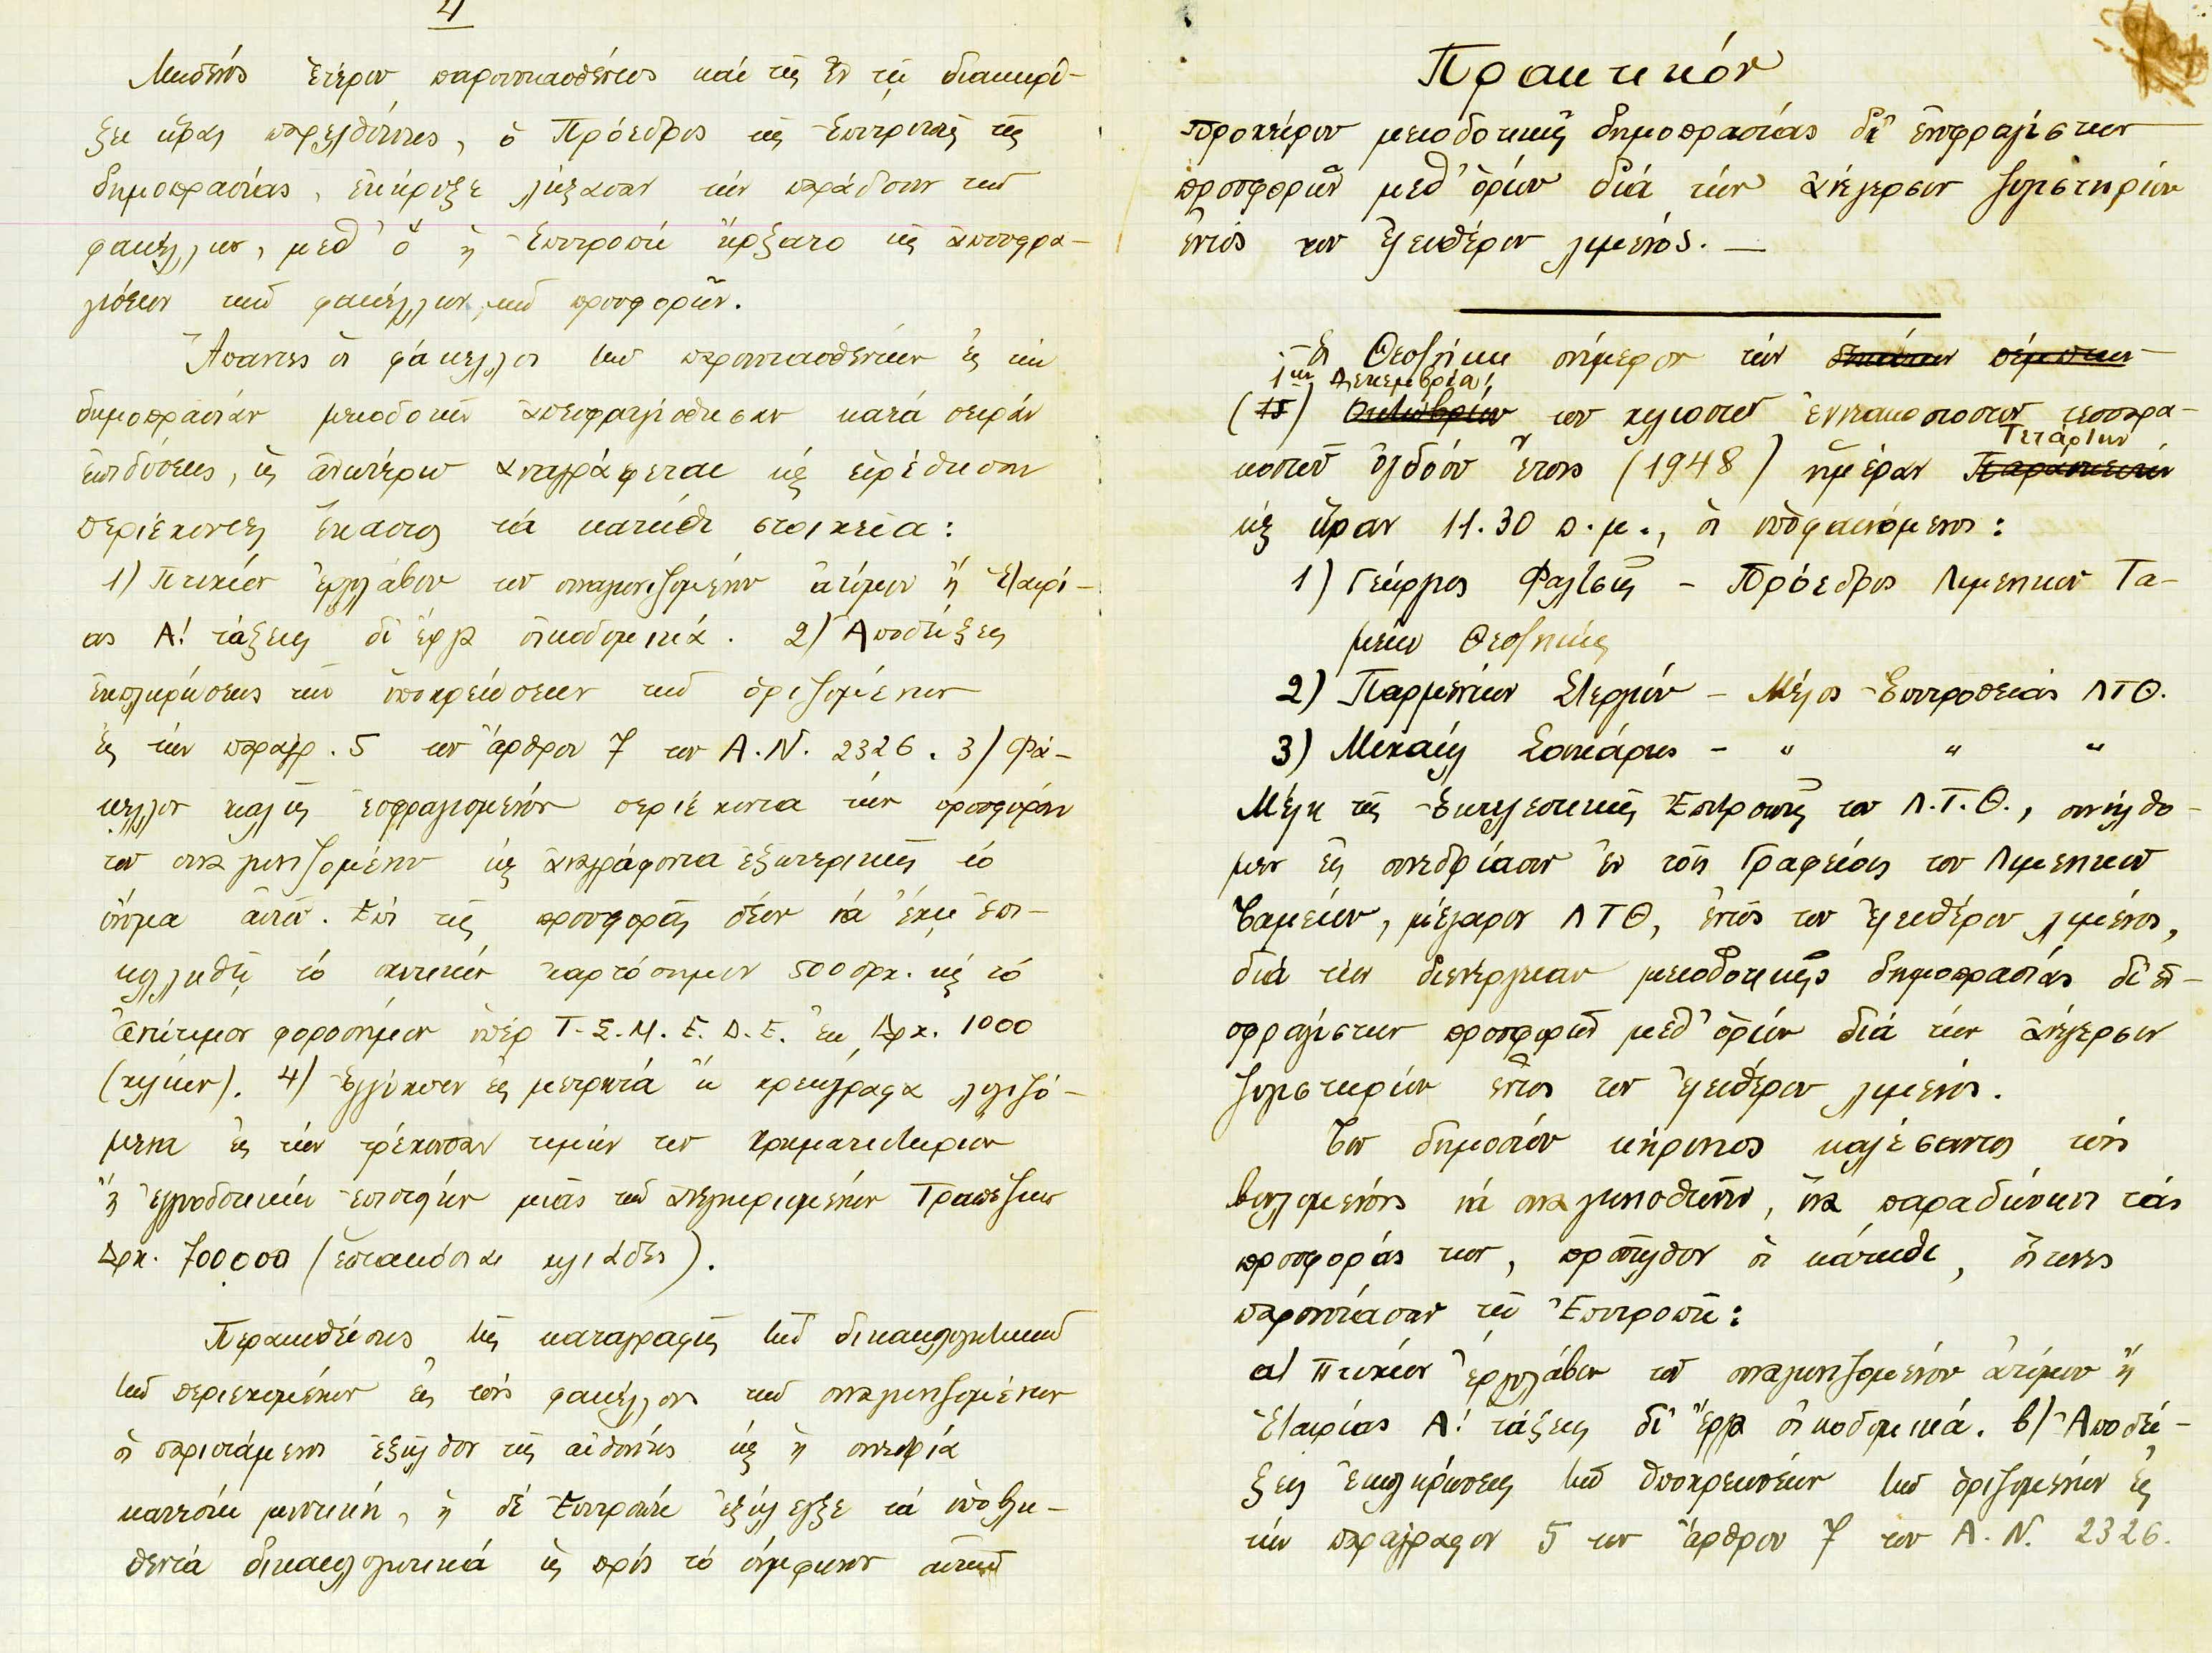 4
Μηδενός ἑτέρου παρουσιασθέντος καί τῆς ἐν τῇ διακηρύ-
ξει ὥρας παρελθούσης, ὁ Πρόεδρος τῆς Ἐπιτροπῆς τῆς
δημοπρασίας, ἐκήρυξε λήξασαν τήν παράδοσιν τῶν
φακέλλων, μεθ' ὅ ἡ Ἐπιτροπή ἤρξατο τῆς ἀποσφρα-
γίσεως τῶν φακέλλων τῶν προσφορῶν.
Ἅπαντες οἱ φάκελλοι τῶν παρουσιασθέντων εἰς τήν
δημοπρασίαν μειοδοτῶν ἀπεσφραγίσθησαν κατά σειράν
ἐπιδόσεως, ὡς ἀνωτέρω ἀναγράφεται κ εὑρέθησαν
περιέχοντες ἕκαστος τά κάτωθι στοιχεῖα:
1) Πτυχίον ἐργολάβου τοῦ συναγωνιζομένου ἀτόμου ἤ Ἑταιρί-
ας Α! τάξεως δι' ἔργα οἰκοδομικά. 2) Ἀποδείξεις
ἐκπληρώσεως τῶν ὑποχρεώσεων τῶν ὁριζομένων
εἰς τήν παράγρ. 5 τοῦ ἄρθρου 7 τοῦ Α.Ν. 2326. 3) Φά-
κελλον καλῶς ἐσφραγισμένον περιέχοντα τήν προσφοράν
τοῦ συναγωνιζομένου κ ἀναγράφοντα ἐξωτερικῶς τό
ὄνομα αὐτοῦ. Ἐπί τῆς προσφορᾶς δέον νά ἔχῃ ἐπι-
κολληθῆ τό οἰκεῖον χαρτόσημον 500 δρχ. κ τό
ἀνάτιμον φοροσήμον ὑπέρ Τ.Σ.Μ.Ε.Δ.Ε. ἐκ Δρχ. 1000
(χιλίων). 4) Ἐγγύησιν εἰς μετρητά ἤ χρεώγραφα λογιζό-
μενα εἰς τήν τρέχουσαν τιμήν τοῦ Χρηματιστηρίου
ἤ ἐγγυοδοτικήν ἐπιστολήν μιᾶς τῶν ἀνεγνωρισμένων Τραπεζῶν
Δρχ. 700000 (ἑπτακόσιαι χιλιάδες).
Περαιωθείσης τῆς καταγραφῆς τῶν δικαιολογητικῶν
τῶν περιεχομένων εἰς τούς φακέλλους τῶν συναγωνιζομένων
οἱ παριστάμενοι ἐξῆλθον τῆς αἰθούσης κ ἡ συνεδρία
κατέστη μυστική, ἡ δέ Ἐπιτροπή ἐξήλεγξε τά ὑποβλη-
θέντα δικαιολογητικά ὡς πρός τό σύμφωνον αὐτῶν
Πρακτικόν
προχείρου μειοδοτικῆς δημοπρασίας δι' ἐνσφραγίστων
προσφορῶν μεθ' ὅρων διά τήν ἀνέγερσιν ζυγιστηρίου
ἐντός τοῦ Ἐλευθέρου λιμένος. —
Ἐν Θεσ/νίκῃ σήμερον τήν πέμπτην
1ην Δεκεμβρίου
(15) Ὀκτωβρίου τοῦ χιλιοστοῦ ἐννεακοσιοστοῦ τεσσαρα-
Τετάρτην
κοστοῦ ὀγδόου ἔτους (1948) ἡμέραν Παρασκευήν
κ ὥραν 11.30 π.μ., οἱ ὑποφαινόμενοι:
1) Γεώργιος Φαλτσῆς - Πρόεδρος Λιμενικοῦ Τα-
μείου Θεσ/νίκης
2) Παρμενίων Στεργίου - Μέλος Ἐπιτροπείας ΛΤΘ.
3) Μιχαήλ Σαπκάρης - " " "
Μέλη τῆς Ἐκτελεστικῆς Ἐπιτροπῆς τοῦ Λ.Τ.Θ., συνήλθο-
μεν εἰς συνεδρίασιν ἐν τοῖς Γραφείοις τοῦ Λιμενικοῦ
Ταμείου, μέγαρον ΛΤΘ, ἐντός τοῦ Ἐλευθέρου λιμένος,
διά τήν διενέργειαν μειοδοτικῆς δημοπρασίας δι' ἐν-
σφραγίστων προσφορῶν μεθ' ὅρων διά τήν ἀνέγερσιν
ζυγιστηρίου ἐντός τοῦ Ἐλευθέρου λιμένος.
Τοῦ δημοσίου κήρυκος καλέσαντος τούς
βουλομένους νά συναγωνισθῶσιν, ἵνα παραδώσωσι τάς
προσφοράς των, προσῆλθον οἱ κάτωθι, οἵτινες
παρουσίασαν τῇ Ἐπιτροπῇ:
α) Πτυχίον ἐργολάβου τοῦ συναγωνιζομένου ἀτόμου ἤ
Ἑταιρίας Α! τάξεως δι' ἔργα οἰκοδομικά. β) Ἀποδεί-
ξεις ἐκπληρώσεως τῶν ὑποχρεώσεων τῶν ὁριζομένων εἰς
τήν παράγραφον 5 τοῦ ἄρθρου 7 τοῦ Α.Ν. 2326.